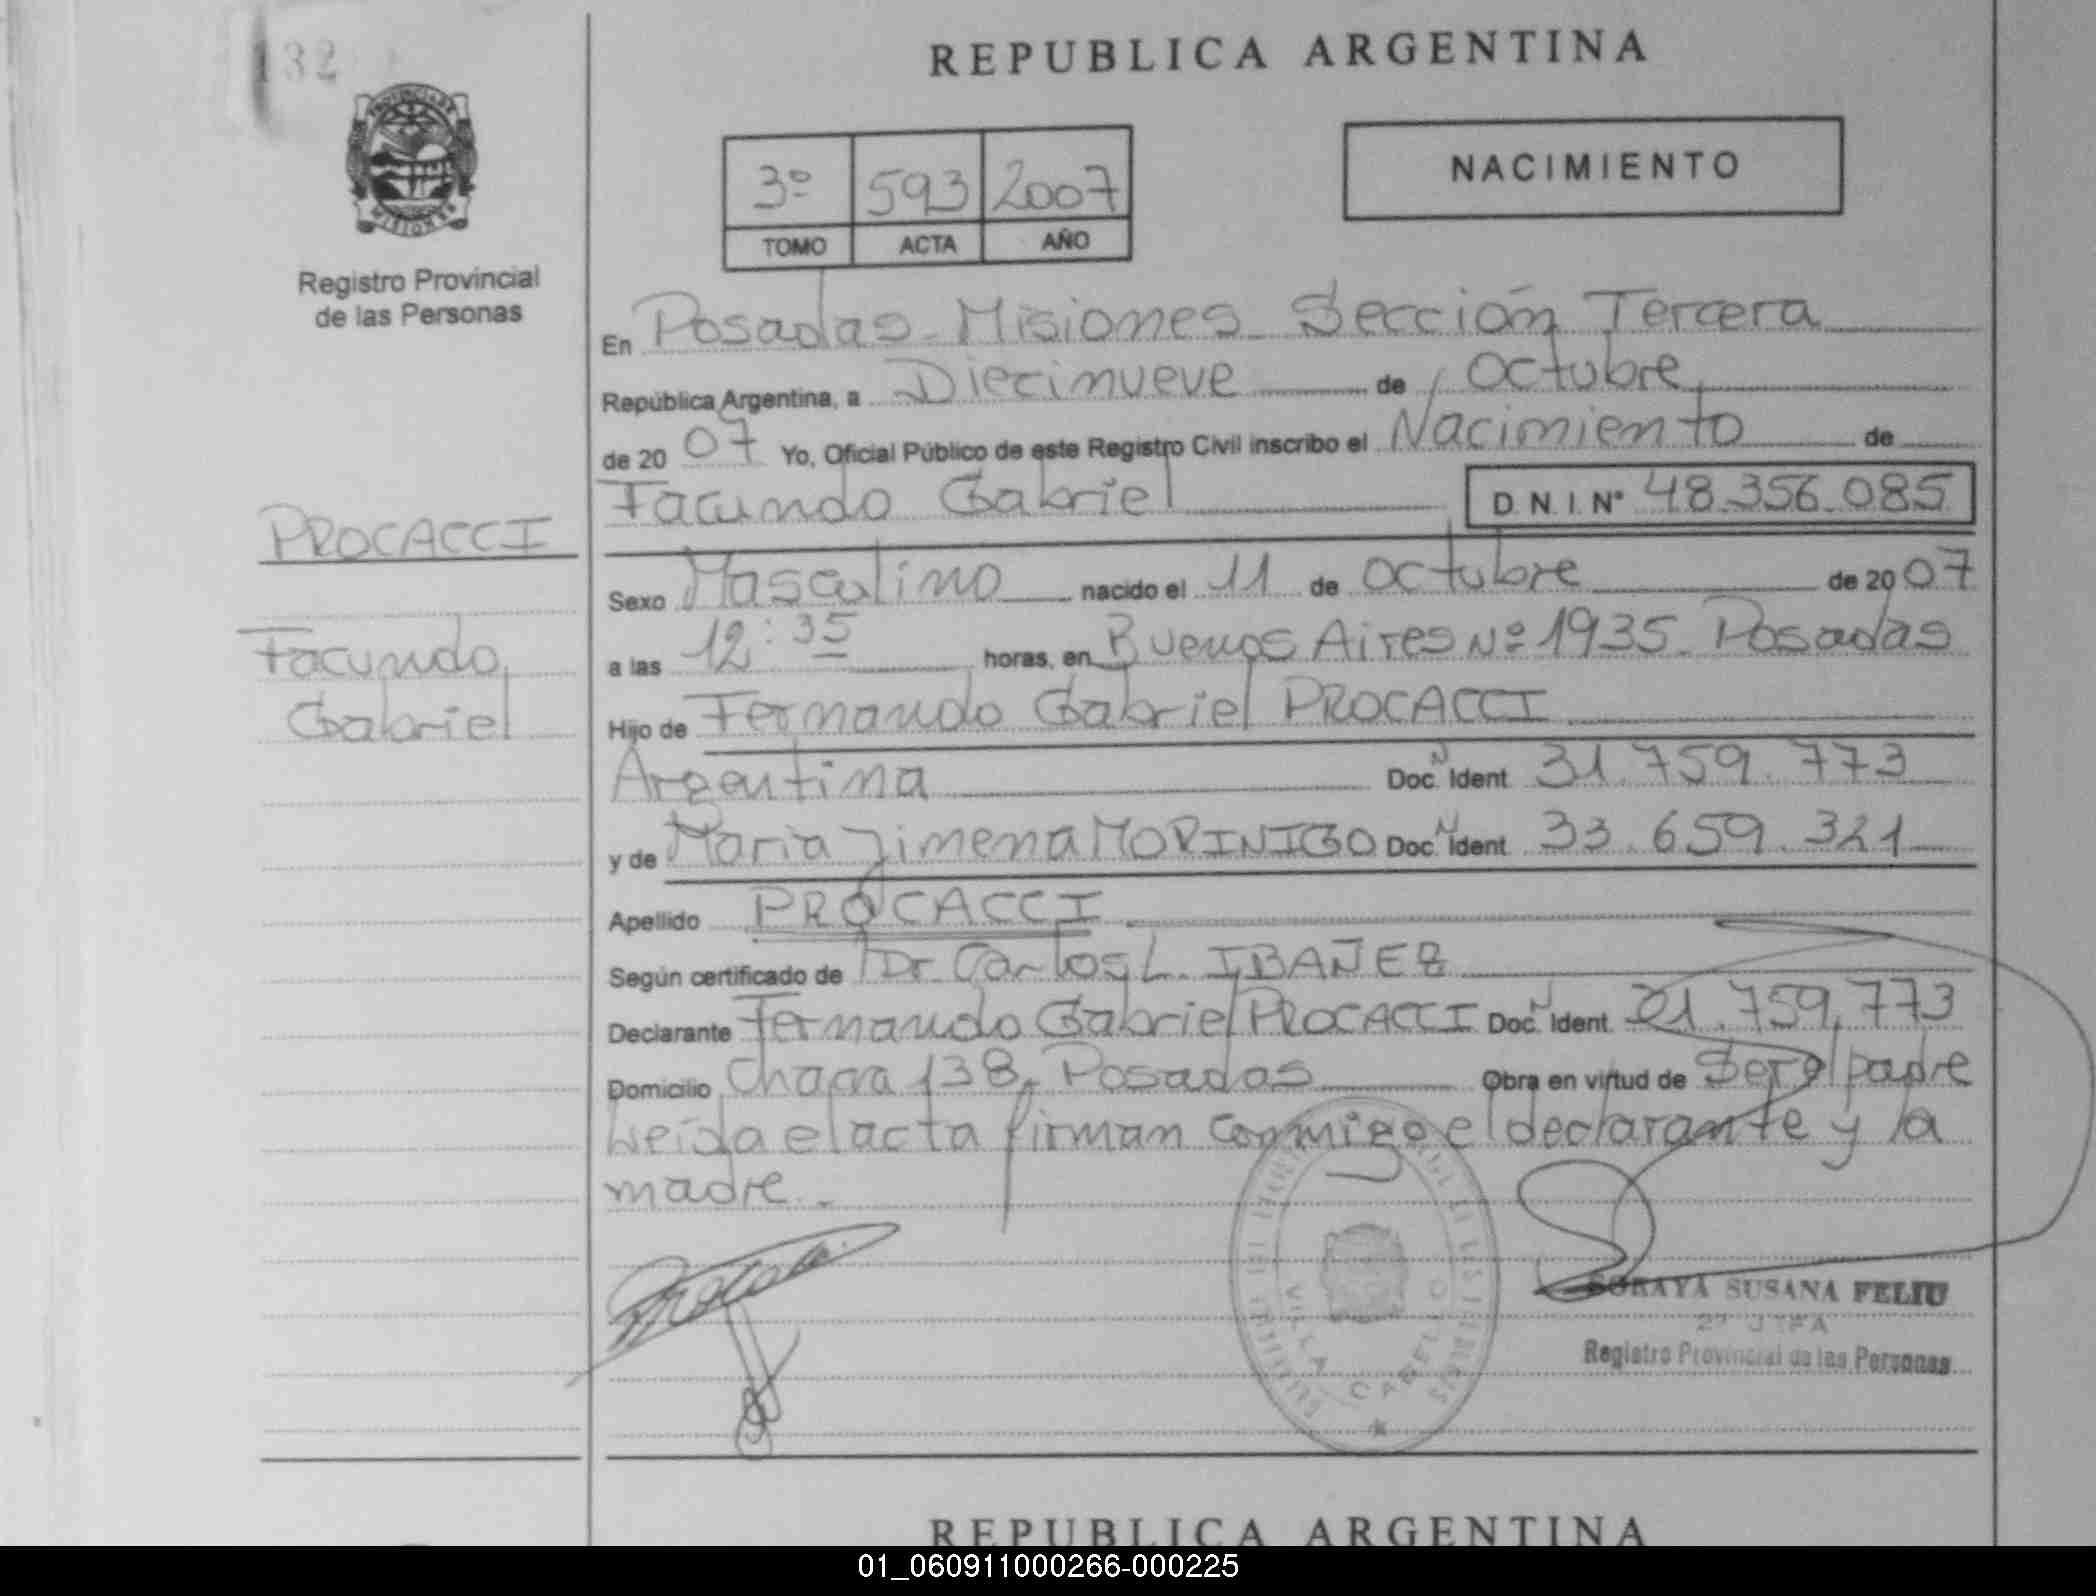 132
PROVINCIA DE
MISIONES
Registro Provincial
de las Personas
REPUBLICA ARGENTINA
3º 593 2007
TOMO ACTA AÑO
NACIMIENTO
En Posadas - Misiones - Sección Tercera
República Argentina, a Diecinueve de Octubre
de 20 07 Yo, Oficial Público de este Registro Civil inscribo el Nacimiento de
Facundo Gabriel D.N.I. Nº 48.356.085
PROCACCI
Sexo Masculino nacido el 11 de Octubre de 20 07
Facundo
Gabriel
a las 12:35 horas, en Buenos Aires Nº 1935 - Posadas
Hijo de Fernando Gabriel PROCACCI
Argentina Doc. N Ident 31.759.773
y de Maria Jimena MORINIGO Doc. N Ident 33.659.321
Apellido PROCACCI
Según certificado de Dr. Carlos L. IBAÑEZ
Declarante Fernando Gabriel PROCACCI Doc. N Ident 31.759.773
Domicilio Chacra 138, Posadas Obra en virtud de Ser el padre
Leida el acta firman conmigo el declarante y la
madre.-
VILLA CABELLO
SORAYA SUSANA FELIU
2º JEFA
Registro Provincial de las Personas
REPUBLICA ARGENTINA
01_060911000266-000225